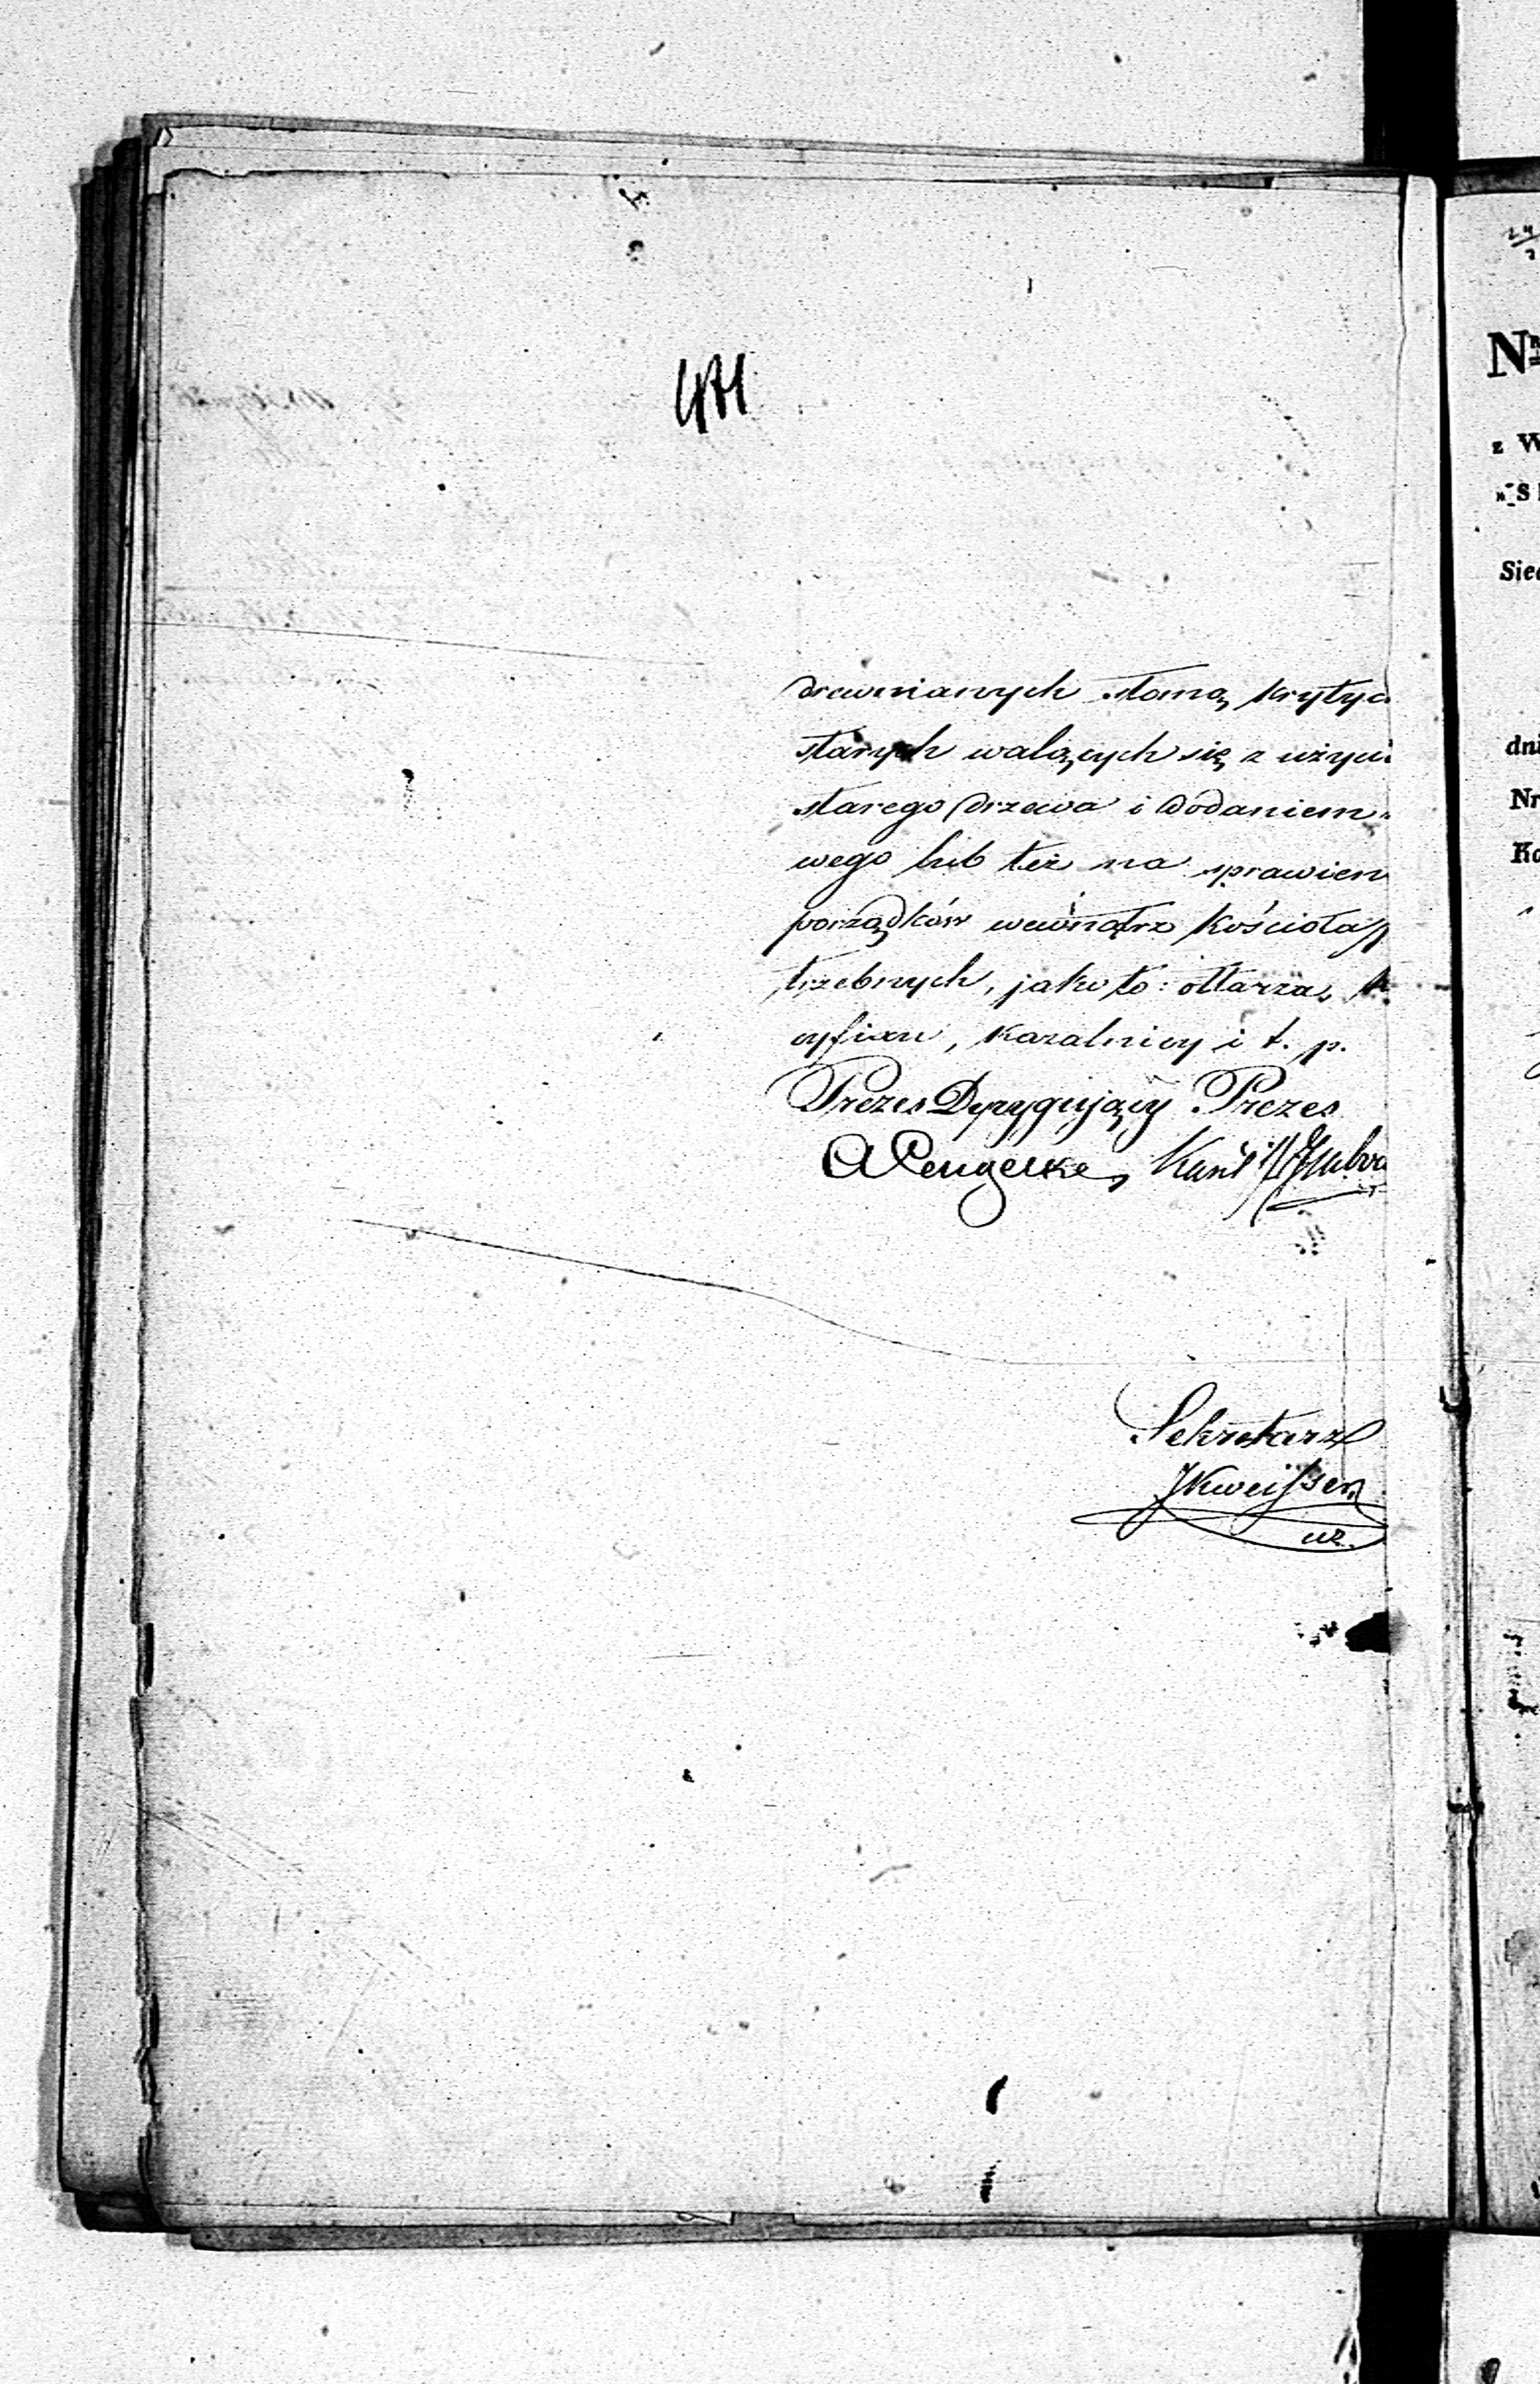 drewnianych słomą krytyc
starych walących się z użyci
starego drzewa i dodaniem
wego lub też na sprawien
porządków wewnątrz kościoła p
trzebnych, jako to: ołtarza, k
cyfixu, kazalnicy i t. p.
Prezes Dyrygujący Prezes
Sekretarz
N
z W
Sied
dni
Nr
Ko